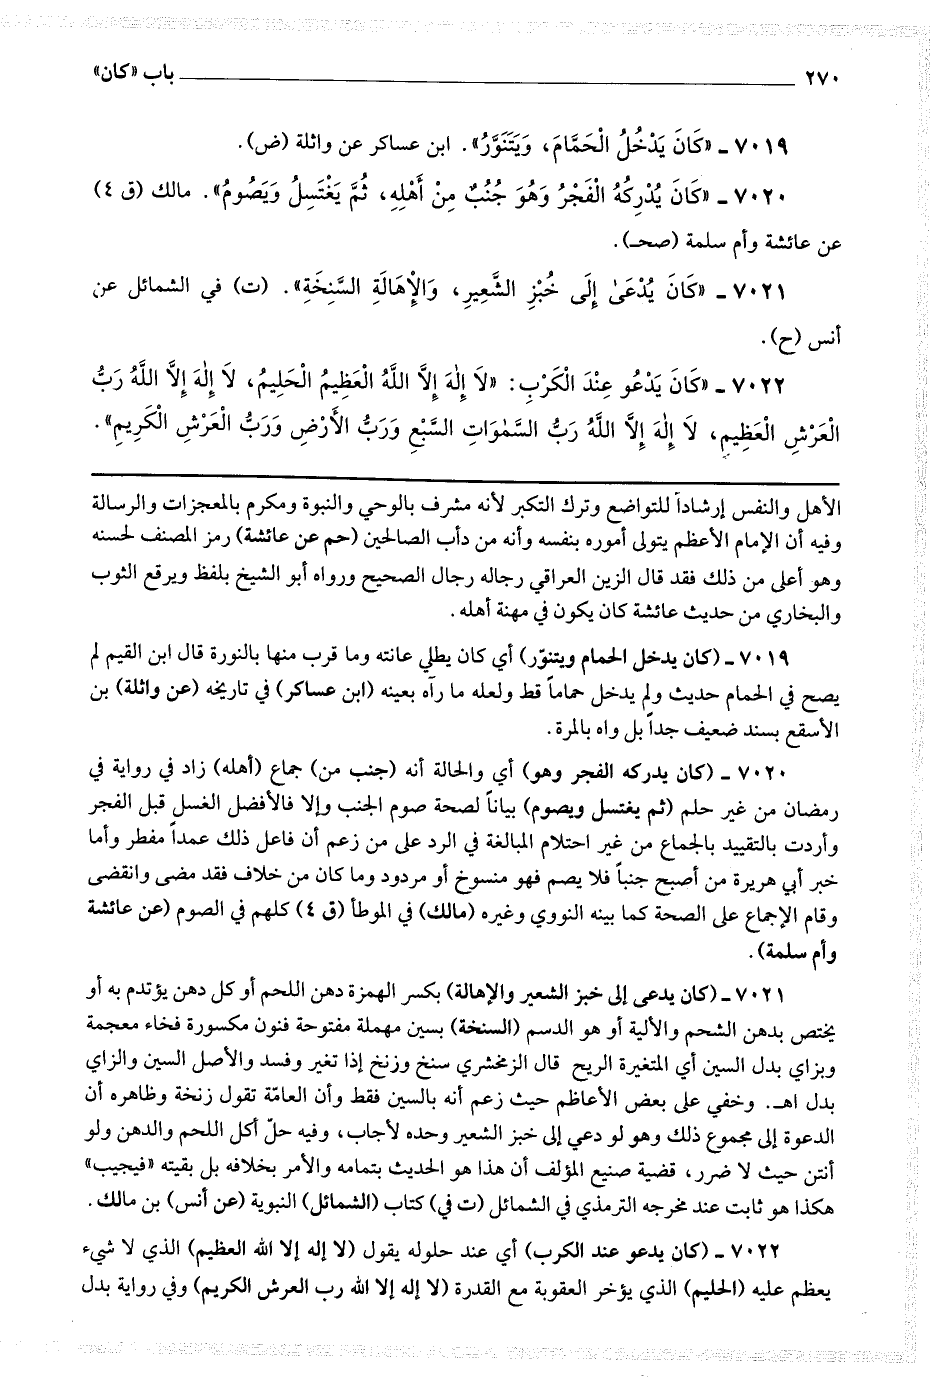 ٢٧٠ باب «كان»
٧٠١٩ ـ «كَانَ يَدْخُلُ الْحَمَّامَ، وَيَتَنَوَّرُ». ابن عساكر عن واثلة (ض).
٧٠٢٠ ـ «كَانَ يُدْرِكُهُ الْفَجْرُ وَهُوَ جُنُبٌ مِنْ أَهْلِهِ، ثُمَّ يَغْتَسِلُ وَيَصُومُ». مالك (ق ٤)
عن عائشة وأم سلمة (صحـ).
٧٠٢١ ـ «كَانَ يُدْعَىٰ إِلَى خُبْزِ الشَّعِيرِ، وَالْإِهَالَةِ السَّنِخَةِ». (ت) في الشمائل عن
أنس (ح).
٧٠٢٢ ـ «كَانَ يَدْعُو عِنْدَ الْكَرْبِ: «لَا إِلٰهَ إِلَّا اللَّهُ الْعَظِيمُ الْحَلِيمُ، لَا إِلٰهَ إِلَّا اللَّهُ رَبُّ
الْعَرْشِ الْعَظِيمِ، لَا إِلٰهَ إِلَّا اللَّهُ رَبُّ السَّمٰوَاتِ السَّبْعِ وَرَبُّ الْأَرْضِ وَرَبُّ الْعَرْشِ الْكَرِيمِ».
الأهل والنفس إرشاداً للتواضع وترك التكبر لأنه مشرف بالوحي والنبوة ومكرم بالمعجزات والرسالة
وفيه أن الإمام الأعظم يتولى أموره بنفسه وأنه من دأب الصالحين (حم عن عائشة) رمز المصنف لحسنه
وهو أعلى من ذلك فقد قال الزين العراقي رجاله رجال الصحيح ورواه أبو الشيخ بلفظ ويرقع الثوب
والبخاري من حديث عائشة كان يكون في مهنة أهله.
٧٠١٩ ـ (كان يدخل الحمام ويتنوّر) أي كان يطلي عانته وما قرب منها بالنورة قال ابن القيم لم
يصح في الحمام حديث ولم يدخل حماماً قط ولعله ما رآه بعينه (ابن عساكر) في تاريخه (عن واثلة) بن
الأسقع بسند ضعيف جداً بل واه بالمرة.
٧٠٢٠ ـ (كان يدركه الفجر وهو) أي والحالة أنه (جنب من) جماع (أهله) زاد في رواية في
رمضان من غير حلم (ثم يغتسل ويصوم) بياناً لصحة صوم الجنب وإلا فالأفضل الغسل قبل الفجر
وأردت بالتقييد بالجماع من غير احتلام المبالغة في الرد على من زعم أن فاعل ذلك عمداً مفطر وأما
خبر أبي هريرة من أصبح جنباً فلا يصم فهو منسوخ أو مردود وما كان من خلاف فقد مضى وانقضى
وقام الإجماع على الصحة كما بينه النووي وغيره (مالك) في الموطأ (ق ٤) كلهم في الصوم (عن عائشة
وأم سلمة).
٧٠٢١ ـ (كان يدعى إلى خبز الشعير والإهالة) بكسر الهمزة دهن اللحم أو كل دهن يؤتدم به أو
يختص بدهن الشحم والألية أو هو الدسم (السنخة) بسين مهملة مفتوحة فنون مكسورة فخاء معجمة
وبزاي بدل السين أي المتغيرة الريح قال الزمخشري سنخ وزنخ إذا تغير وفسد والأصل السين والزاي
بدل اهـ. وخفي على بعض الأعاظم حيث زعم أنه بالسين فقط وأن العامّة تقول زنخة وظاهره أن
الدعوة إلى مجموع ذلك وهو لو دعي إلى خبز الشعير وحده لأجاب، وفيه حلّ أكل اللحم والدهن ولو
أنتن حيث لا ضرر، قضية صنيع المؤلف أن هذا هو الحديث بتمامه والأمر بخلافه بل بقيته «فيجيب»
هكذا هو ثابت عند مخرجه الترمذي في الشمائل (ت في) كتاب (الشمائل) النبوية (عن أنس) بن مالك.
٧٠٢٢ ـ (كان يدعو عند الكرب) أي عند حلوله يقول (لا إله إلا الله العظيم) الذي لا شيء
يعظم عليه (الحليم) الذي يؤخر العقوبة مع القدرة (لا إله إلا الله رب العرش الكريم) وفي رواية بدل